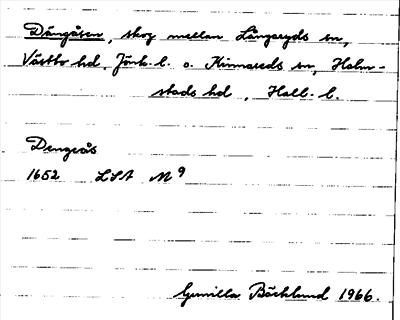 Dängåsen, skog mellan Långaryds sn,
Västbo hd, Jönk. l. o. Kinnareds sn, Halm-
stads hd, Hall. l.
Dengeås
1652 LSA M 9
Gunilla Bäcklund 1966.